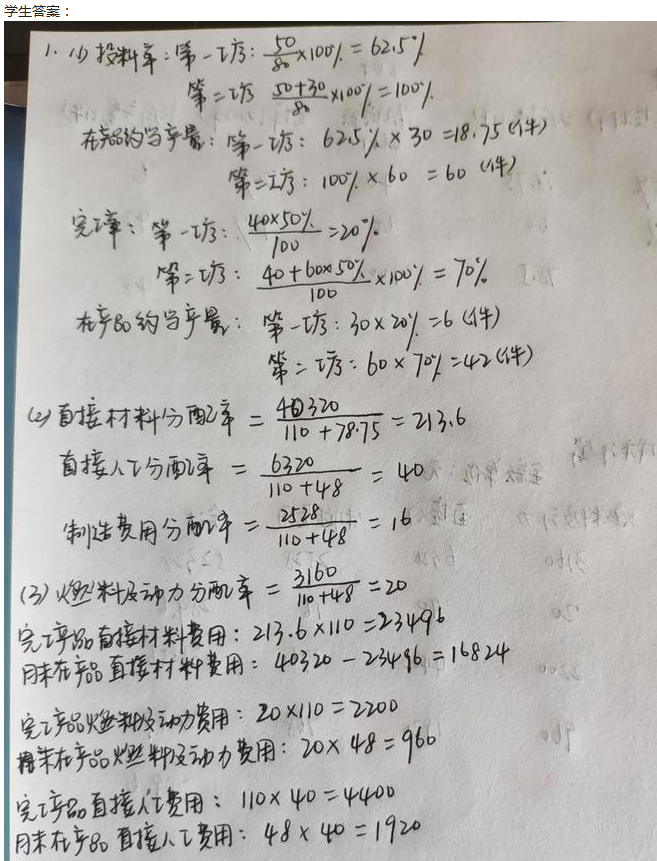 学生答案：
1. (1) 投料率：第一工序：50/80×100%=62.5%
第二工序 50+30/80×100%=100%
在产品约当产量：第一工序：62.5%×30=18.75(件)
第二工序：100%×60=60(件)
完工率：第一工序：40×50%/100=20%
第二工序：40+60×50%/100×100%=70%
在产品约当产量：第一工序：30×20%=6(件)
第二工序：60×70%=42(件)
(2) 直接材料分配率=40320/110+78.75=213.6
直接人工分配率=6320/110+48=40
制造费用分配率=2528/110+48=16
(3) 燃料及动力分配率=3160/110+48=20
完工产品直接材料费用：213.6×110=23496
月末在产品直接材料费用：40320-23496=16824
完工产品燃料及动力费用：20×110=2200
月末在产品燃料及动力费用：20×48=960
完工产品直接人工费用：110×40=4400
月末在产品直接人工费用：48×40=1920